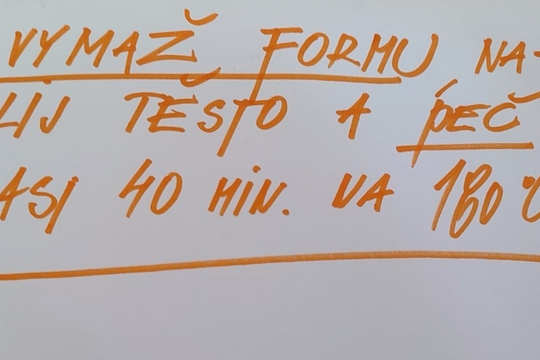 VYMAŽ FORMU NA-
LIJ TĚSTO A PEČ
ASI 40 MIN. NA 160°C